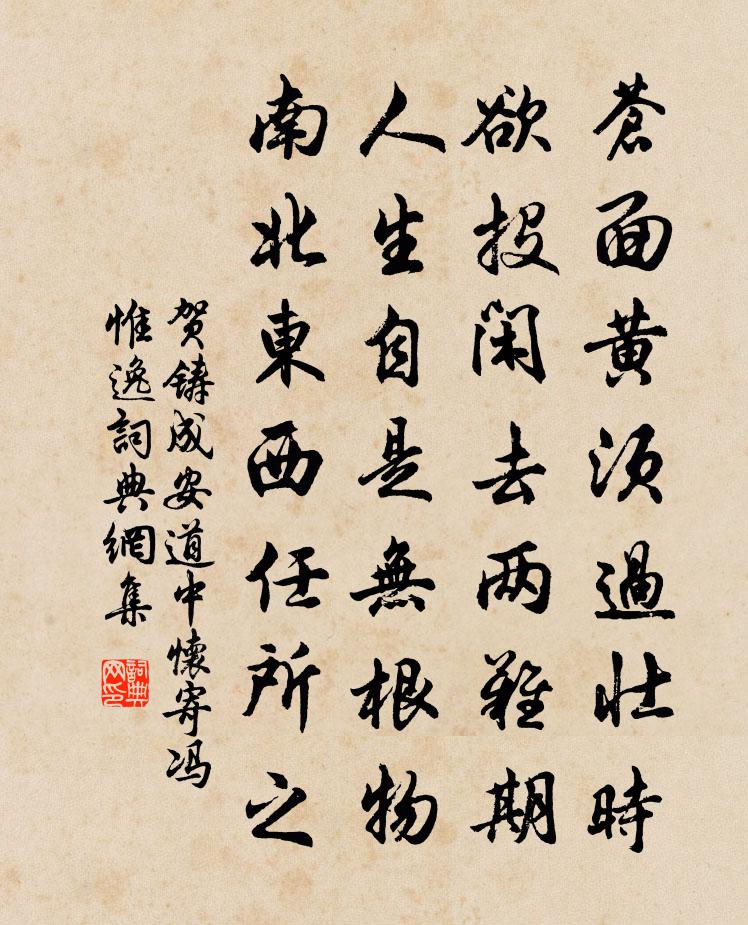 蒼面黄须過壮時
欲投閑去两難期
人生自是無根物
南北東西任所之
贺鑄成安道中懷寄冯
惟逸詞典網集
詞典网印